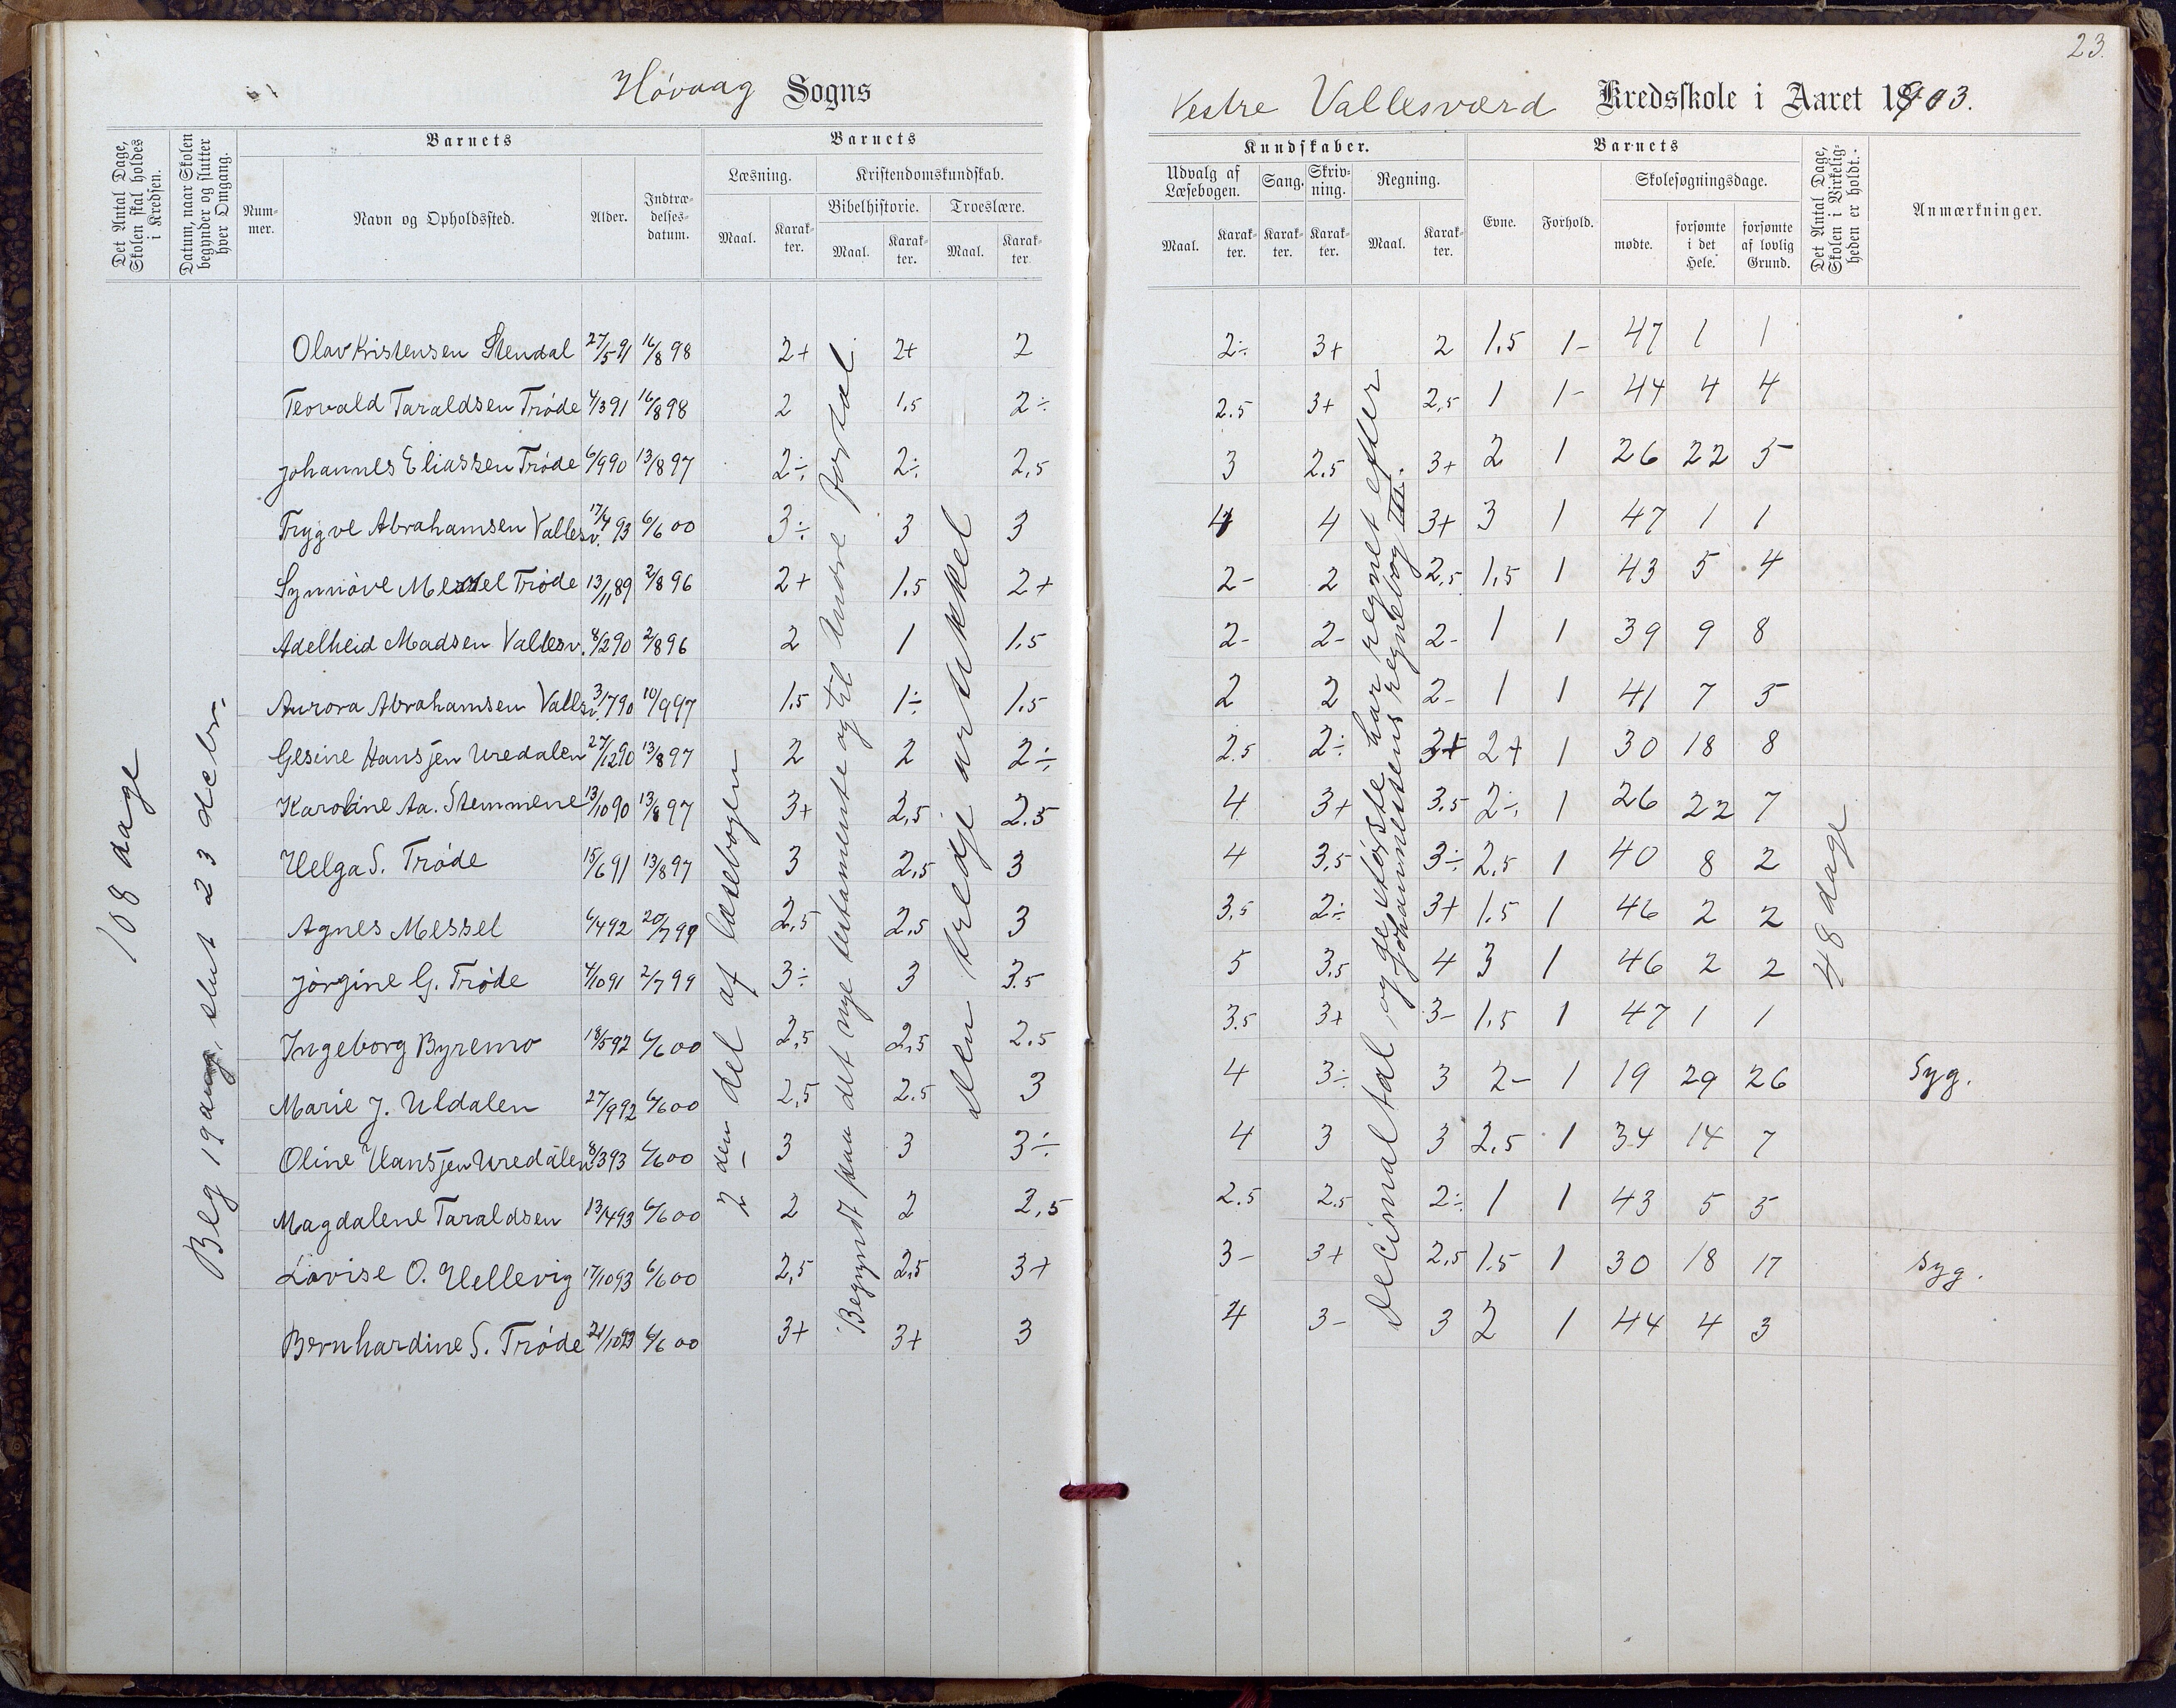 23.
Høvaag Sogns
Vestre Vallesværd Kredsskole i Aaret 1903.
Det Antal Dage, Skolen skal holdes i Kredsen.
Datum, naar Skolen begynder og slutter hver Omgang.
Barnets
Nummer.
Navn og Opholdssted.
Alder.
Indtrædelsesdatum.
Barnets
Læsning.
Maal.
Karakter.
Kristendomskundskab.
Bibelhistorie.
Maal.
Karakter.
Troeslære.
Maal.
Karakter
Kundskaber.
Udvalg af Læsebogen.
Maal.
Karakter.
Sang.
Karakter.
Skrivning.
Karakter.
Regning.
Maal.
Karakter.
Barnets
Evne.
Forhold.
Skolesøgningsdage.
mødte.
forsømte i det Hele.
forsømte af lovlig Grund.
Det Antal Dage, Skolen i Virkeligheden er holdt.
Anmærkninger.
108 dage
Beg 19 aug, slut 23 decbr.
2den del af læsebogen
Begyndt paa det nye testamente og til Andre fortal.
den tredje artikkel
Decimaltal, og de største har regnet efter
Johannessens regnebog III.
48 dage
Olav Kristensen Stendal 27/5 91 16/8 98 2+ 2+ 2 2÷ 3+ 2 1,5 1- 47 1 1
Teovald Taraldsen Trøde 4/3 91 16/8 98 2 1,5 2÷ 2.5 3+ 2,5 1 1- 44 4 4
Johannes Eliassen Trøde 6/9 90 13/8 97 2÷ 2÷ 2,5 3 2.5 3+ 2 1 26 22 5
Trygve Abrahamsen Vallesv. 17/4 93 6/6 00 3÷ 3 3 4 4 3+ 3 1 47 1 1
Synnøve Messel Trøde 13/11 89 2/8 96 2+ 1.5 2+ 2- 2 2,5 1,5 1 43 5 4
Adelheid Madsen Vallesv. 8/2 90 2/8 96 2 1 1.5 2- 2- 2- 1 1 39 9 8
Aurora Abrahamsen Vallesv. 3/7 90 10/9 97 1.5 1÷ 1.5 2 2 2- 1 1 41 7 5
Gesine Hansjen Uredalen 27/12 90 13/8 97 2 2 2÷ 2.5 2÷ 3+ 2+ 1 30 18 8
Karoline Aa. Stemmene 13/10 90 13/8 97 3+ 2,5 2.5 4 3+ 3.5 2÷ 1 26 22 7
Helga S. Trøde 15/6 91 13/8 97 3 2,5 3 4 3,5 3÷ 2,5 1 40 8 2
Agnes Messel 6/4 92 20/7 99 2,5 2,5 3 3,5 2÷ 3+ 1.5 1 46 2 2
Jørgine G. Trøde 4/10 91 2/7 99 3÷ 3 3.5 5 3,5 4 3 1 46 2 2
Ingeborg Byremo 18/5 92 6/6 00 2,5 2,5 2.5 3.5 3+ 3- 1,5 1 47 1 1
Marie J. Uldalen 27/9 92 6/6 00 2,5 2.5 3 4 3÷ 3 2- 1 19 29 26 Syg.
Oline Hansjen Uredalen 8/3 93 6/6 00 3 3 3÷ 4 3 3 2,5 1 34 14 7
Magdalene Taraldsen 13/4 93 6/6 00 2 2 2,5 2.5 2.5 2÷ 1 1 43 5 5
Lovise O. Hellevig 17/10 93 6/6 00 2,5 2,5 3+ 3- 3+ 2,5 1.5 1 30 18 17 Syg.
Bernhardine S. Trøde 21/10 93 6/6 00 3+ 3+ 3 4 3- 3 2 1 44 4 3